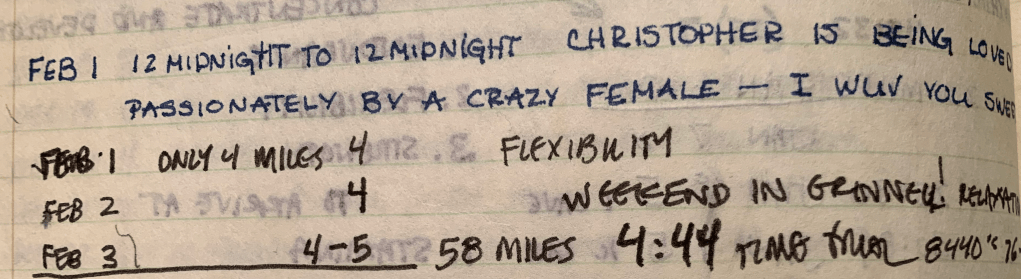 FEB 1 12 MIDNIGHT TO 12 MIDNIGHT CHRISTOPHER IS BEING LOVED
PASSIONATELY BY A CRAZY FEMALE — I WUV YOU
FEB 1 ONLY 4 MILES 4 FLEXIBILITY
FEB 2 4 WEEKEND IN GRINNELL!
FEB 3 4-5 58 MILES 4:44 TIME TRIAL 8440